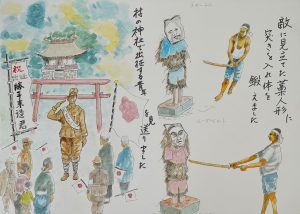 敵に見立てた藁人形に
突きを入れ体を
鍛えました
村の神社で出征する青年
を見送りました
祝